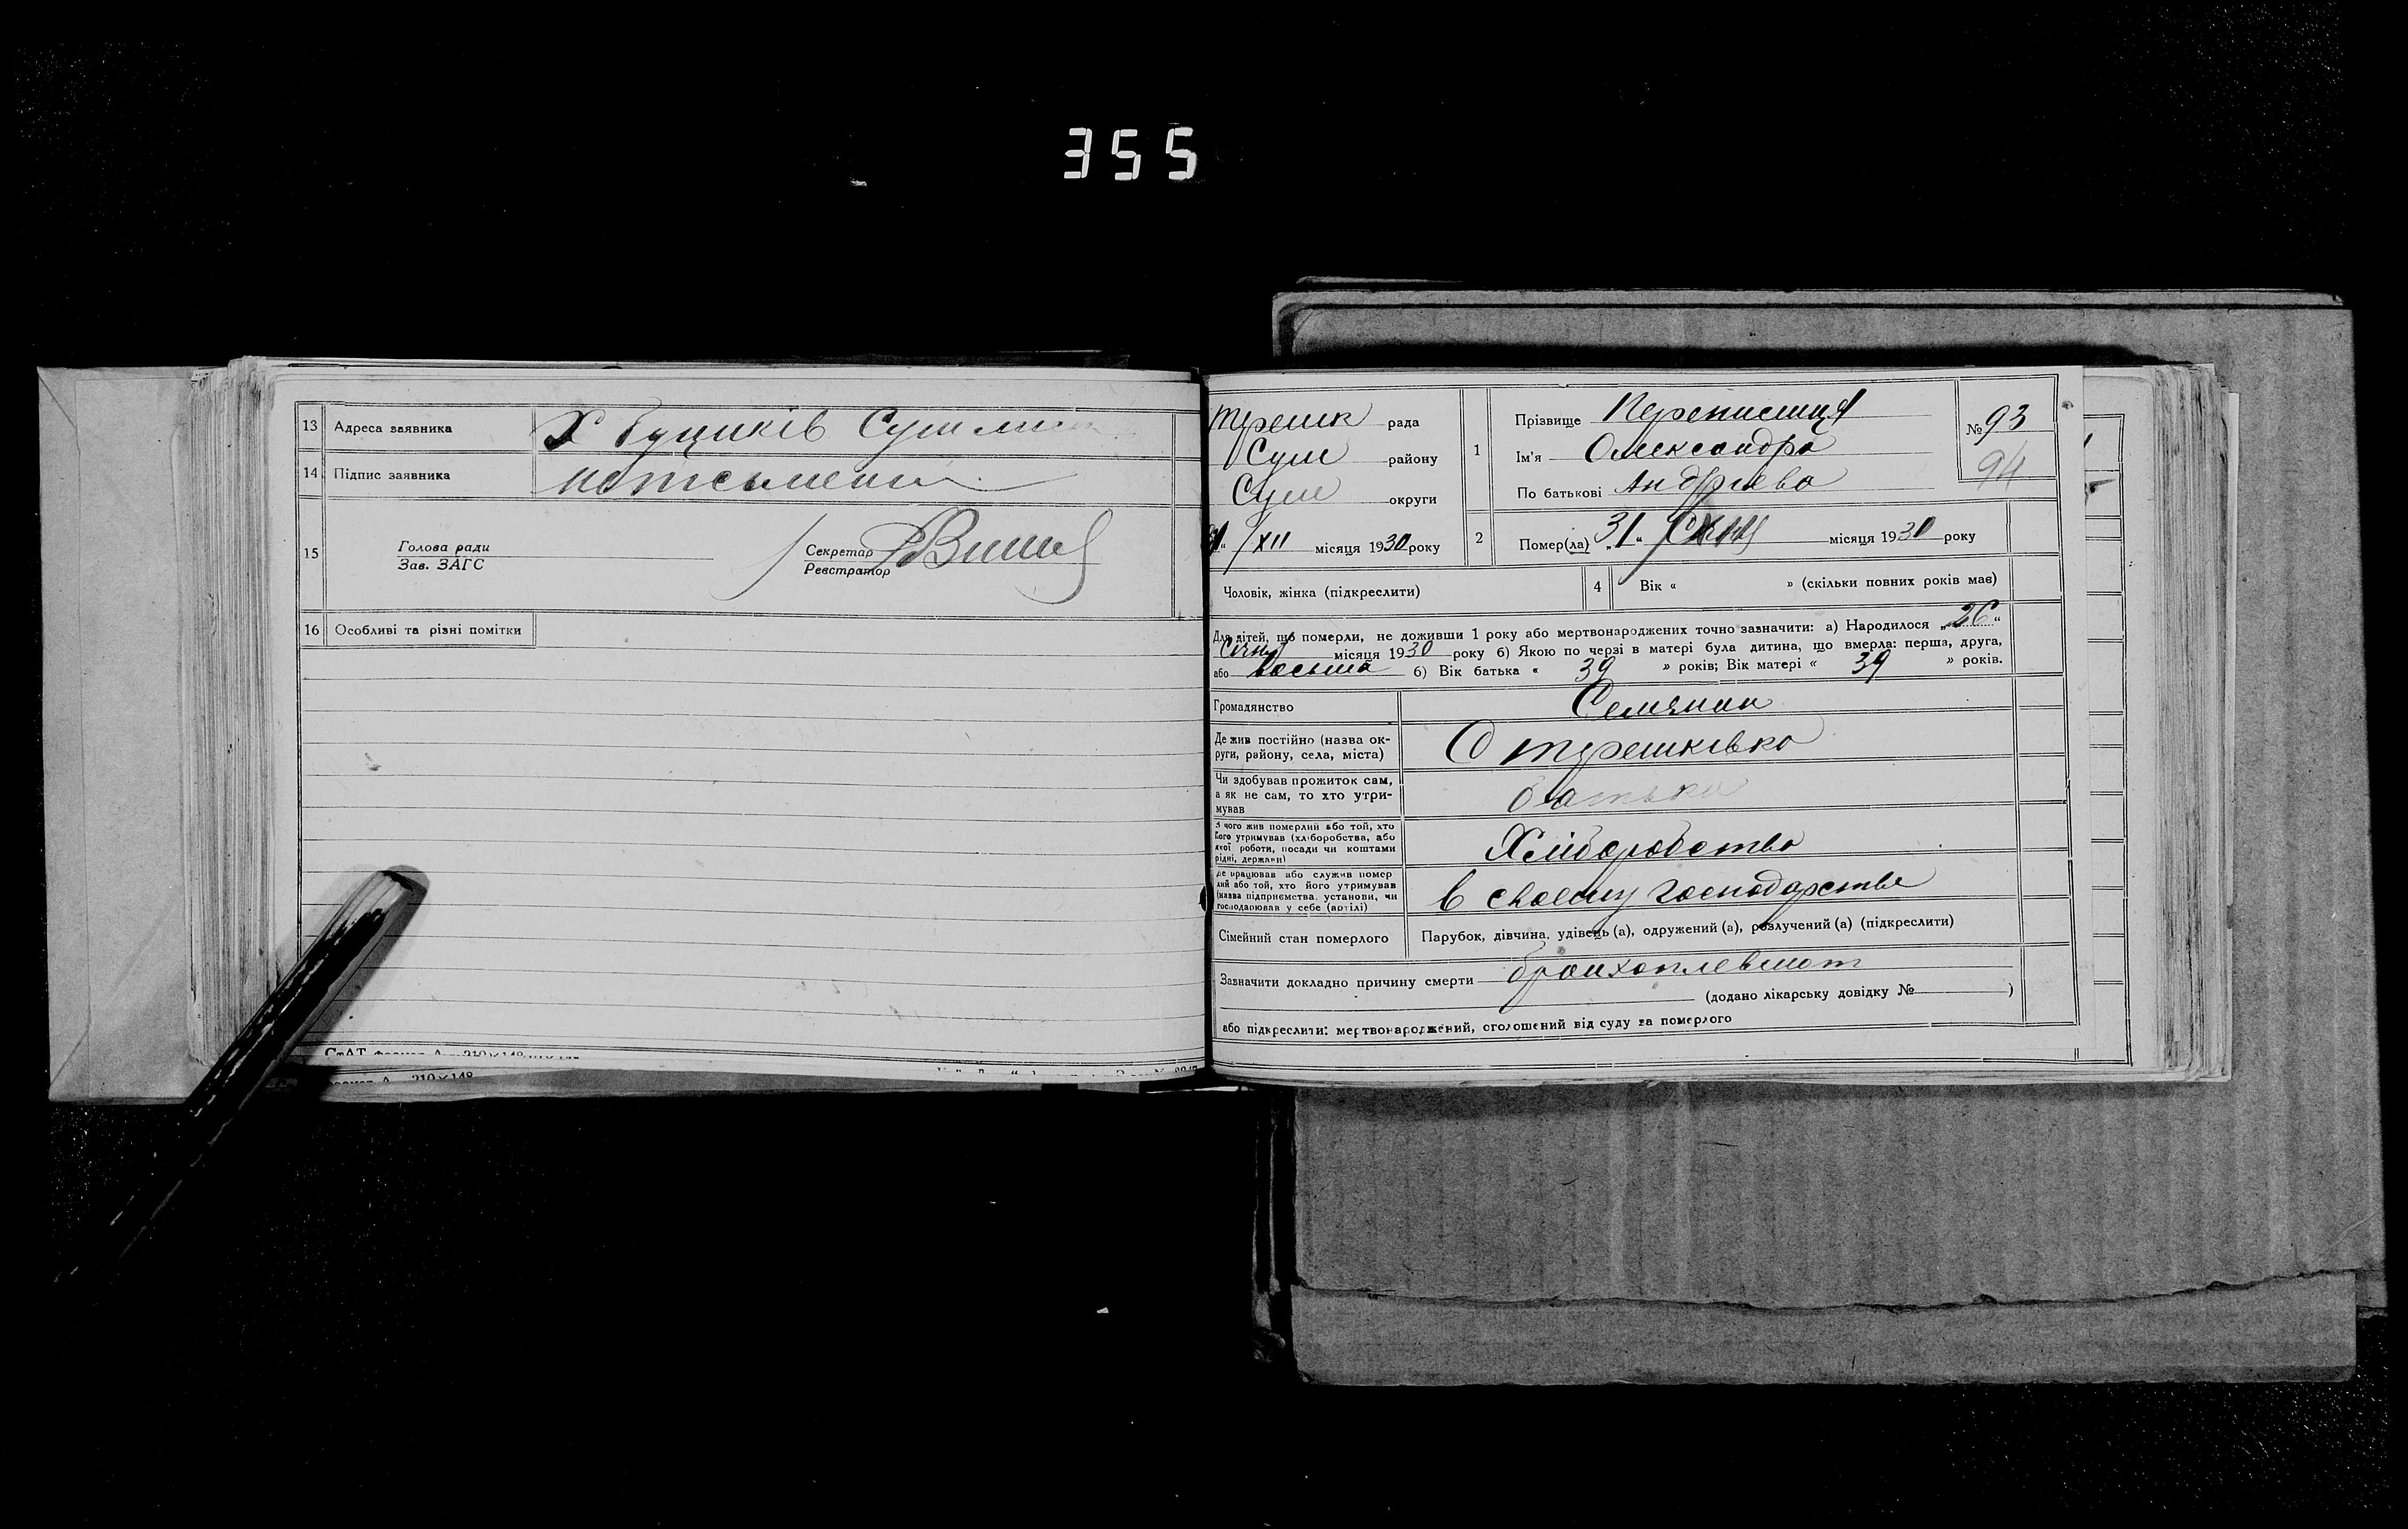 355
13 Адреса заявника Х Буциків Сум
14 Підпис заявника неписьмен
15 Голова ради
Зав. ЗАГС
Секретар
Реєстратор
16 Особливі та різні помітки
СтАТ формат А 210×148
формат А 210×148
Терешк рада
Сум району
Сум округи
/XII місяця 1930 року
1 Прізвище Переписиця
Ім'я Олександра
По батькові Андрієва
№ 93
94
2 Помер(ла) „31“ місяця 1930 року
Чоловік, жінка (підкреслити)
4 Вік « » (скільки повних років має)
Для дітей, що померли, не доживши 1 року або мертвонароджених точно зазначити: а) Народилося „26“
Січня місяця 1930 року б) Якою по черзі в матері була дитина, що вмерла: перша, друга,
або восьма б) Вік батька « 39 » років; Вік матері « 39 » років.
Громадянство Селянин
Де жив постійно (назва ок-
руги, району, села, міста)
С Терешківка
Чи здобував прожиток сам,
а як не сам, то хто утри-
мував
батько
З чого жив померлий або той, хто
його утримував (хліборобства, або
якої роботи, посади чи коштами
рідні, держави)
Хліборобство
Де працював або служив помер
лий або той, хто його утримував
(назва підприємства, установи, чи
господарював у себе (артілі)
в своему господарстве
Сімейний стан померлого Парубок, дівчина, удівець (а), одружений (а), розлучений (а) (підкреслити)
Зазначити докладно причину смерти
(додано лікарську довідку № )
або підкреслити: мертвонароджений, оголошений від суду за померлого